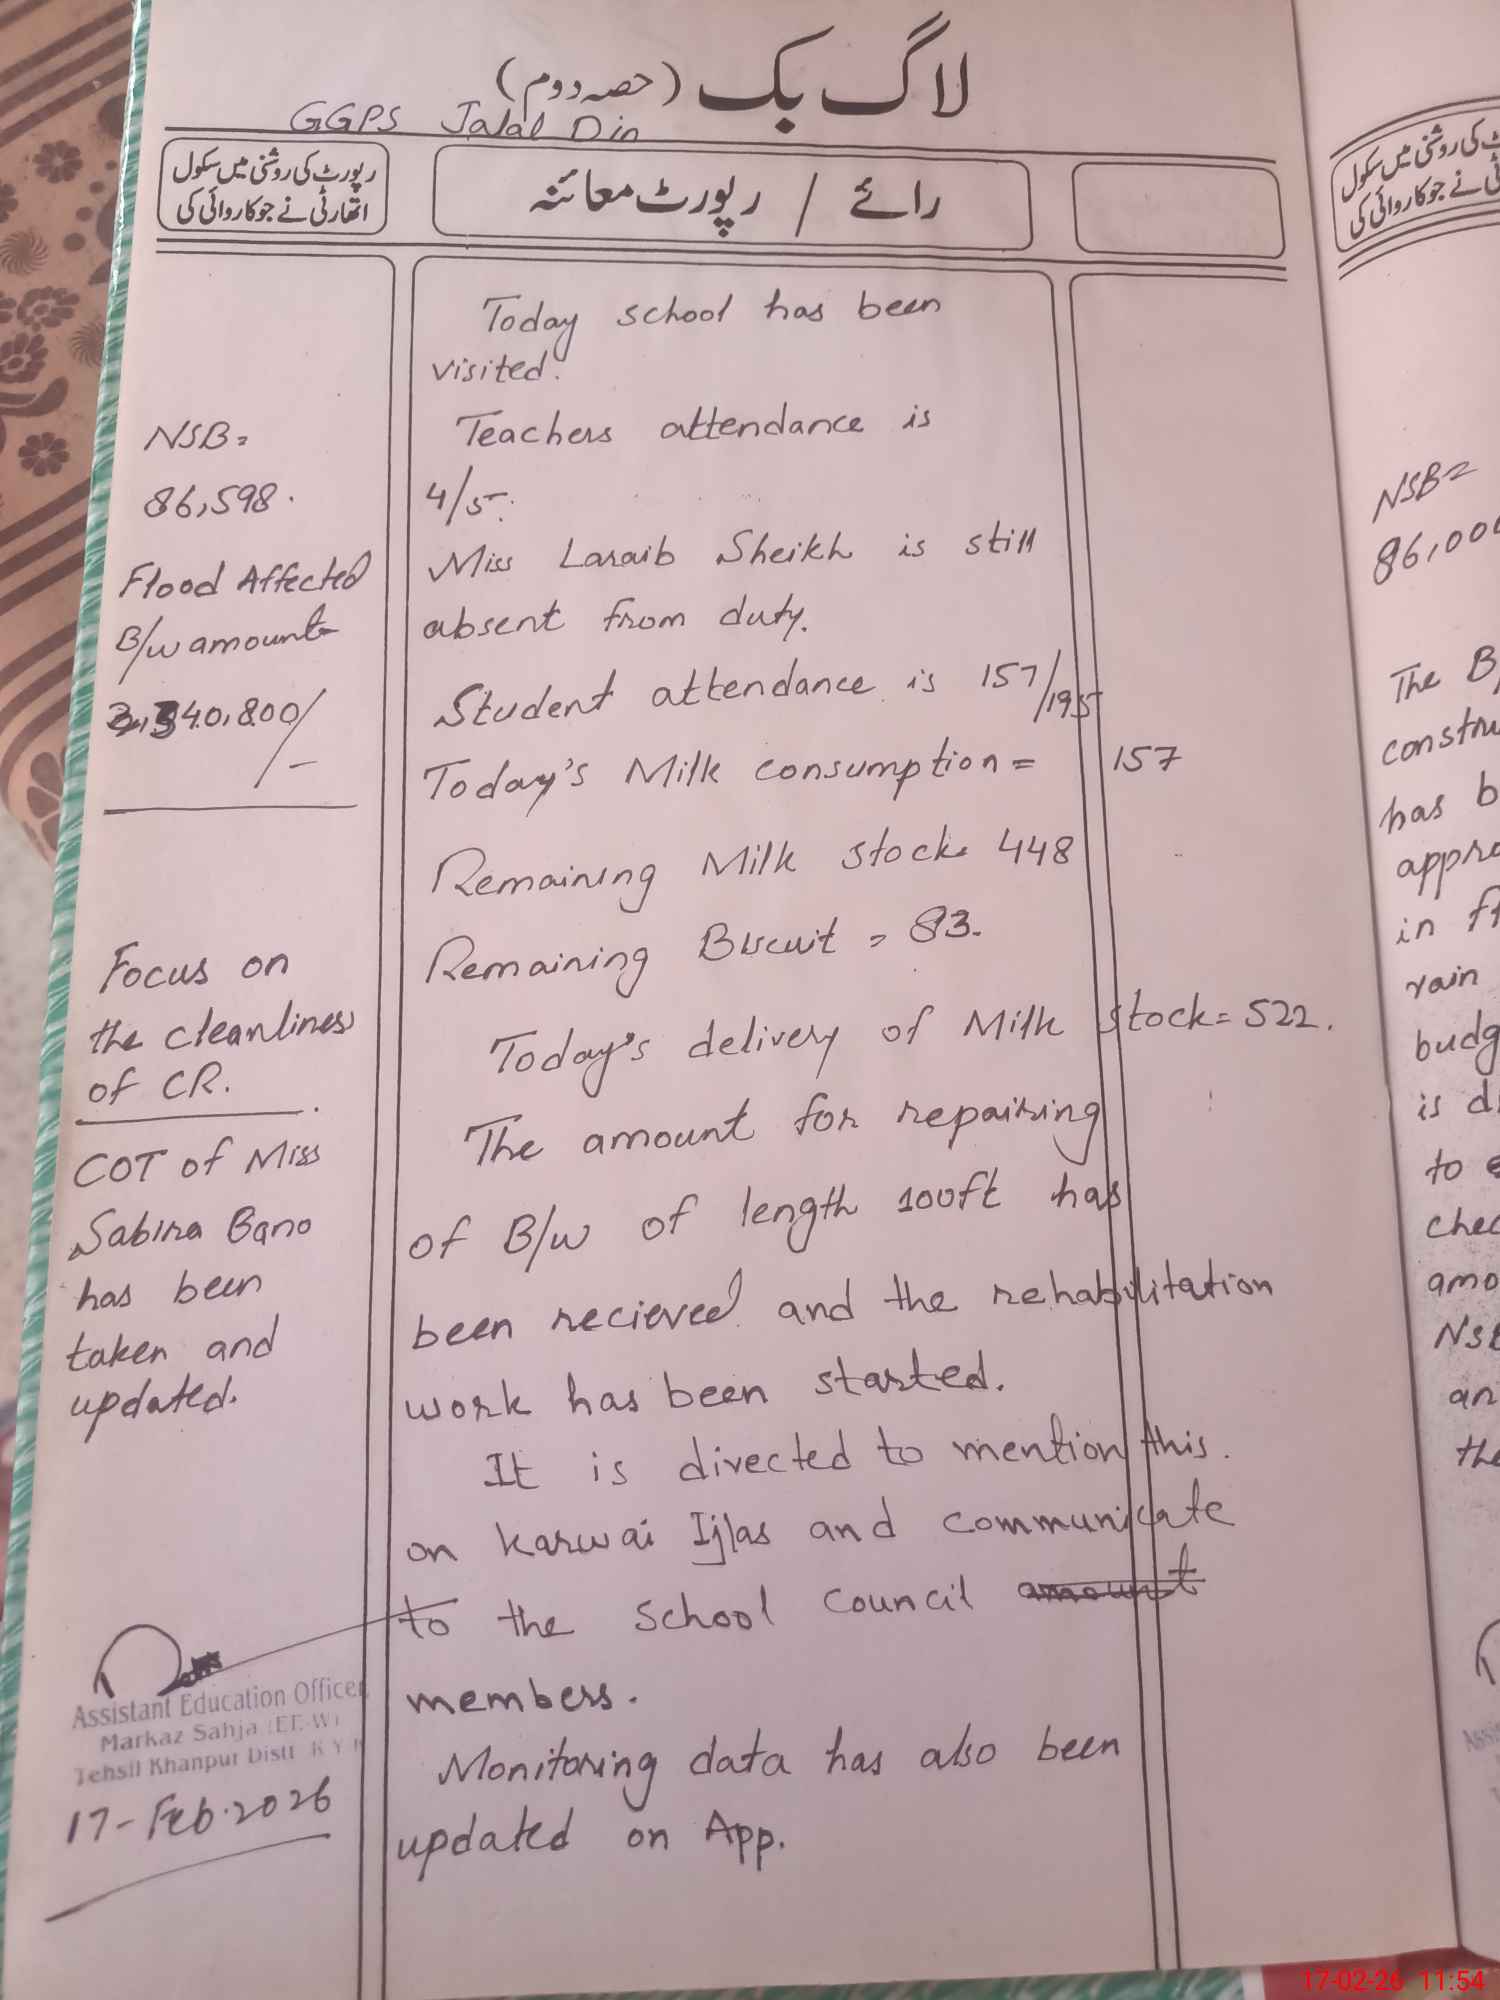 لاگ بک (حصہ دوم)
GGPS Jalal Din
رپورٹ کی روشنی میں سکول
اتھارٹی نے جو کاروائی کی
رائے / رپورٹ معائنہ
Today school has been
visited.
Teachers attendance is
4/5.
Miss Laraib Sheikh is still
absent from duty.
Student attendance is 157/195
Today's Milk consumption = 157
Remaining Milk stock= 448
Remaining Biscuit = 83.
Today's delivery of Milk stock= 522.
The amount for repairing
of B/w of length 100ft has
been recieved and the rehabilitation
work has been started.
It is directed to mention this.
on karwai Ijlas and communicate
to the school council amount
members.
Monitoring data has also been
updated on App.
NSB=
86,598.
Flood Affected
B/w amount
40,800/-
Focus on
the cleanliness
of CR.
COT of Miss
Sabira Bano
has been
taken and
updated.
Assistant Education Officer
Markaz Sahja (EE-W)
Tehsil Khanpur Distt R Y K
17-Feb-2026
رپورٹ کی روشنی میں سکول
اتھارٹی نے جو کاروائی کی
NSB=
86,00
The B/
constru
has b
appro
in
rain
budg
is d
to
chec
amo
NSB
an
the
17-02-26 11:54